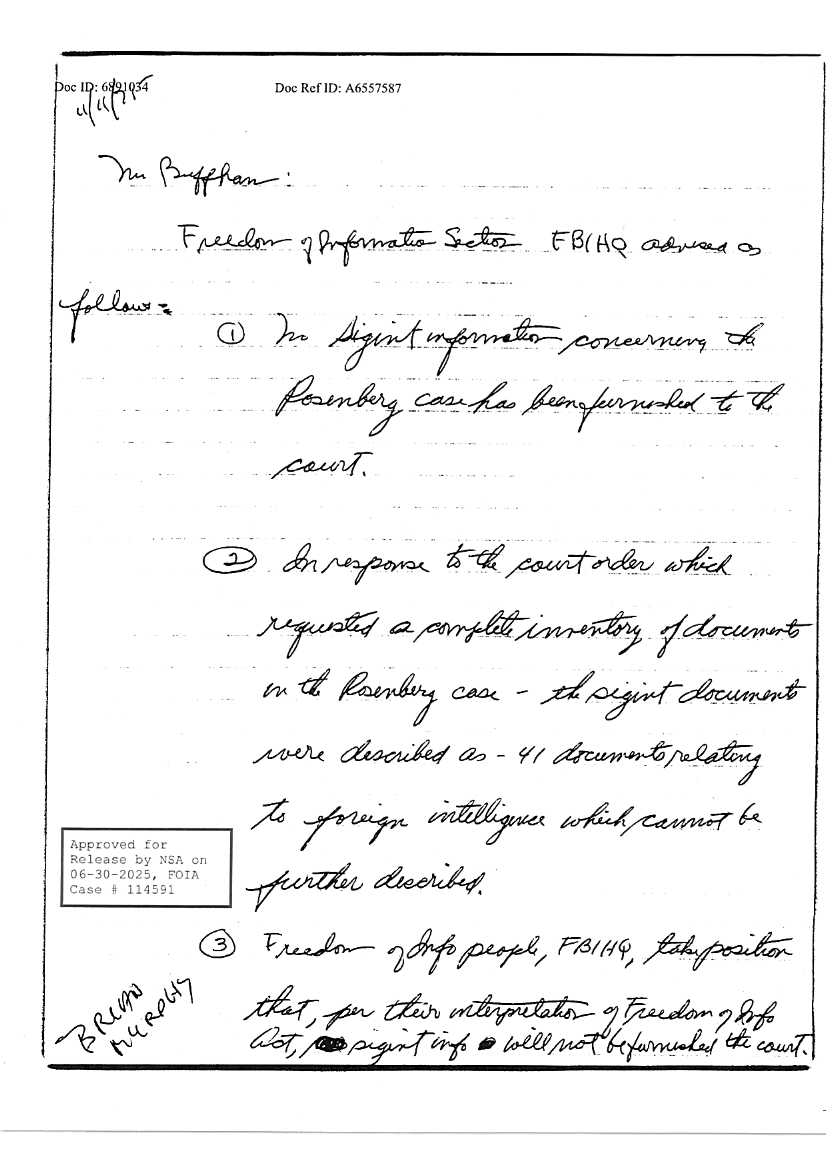 Doc ID: 6821034 Doc Ref ID: A6557587
11/11/75
Mr Buffham:
Freedom of Information Section FBIHQ advised as
follows
① No Sigint information concerning the
Rosenberg case has been furnished to the
court.
② In response to the court order which
requested a complete inventory of documents
in the Rosenberg case - the sigint documents
were described as - 41 documents relating
to foreign intelligence which cannot be
further described.
Approved for
Release by NSA on
06-30-2025, FOIA
Case # 114591
③ Freedom of Info people, FBIHQ, take position
that, per their interpretation of Freedom of Info
Act, sigint info will not be furnished the court.
BRIAN
MURPHY